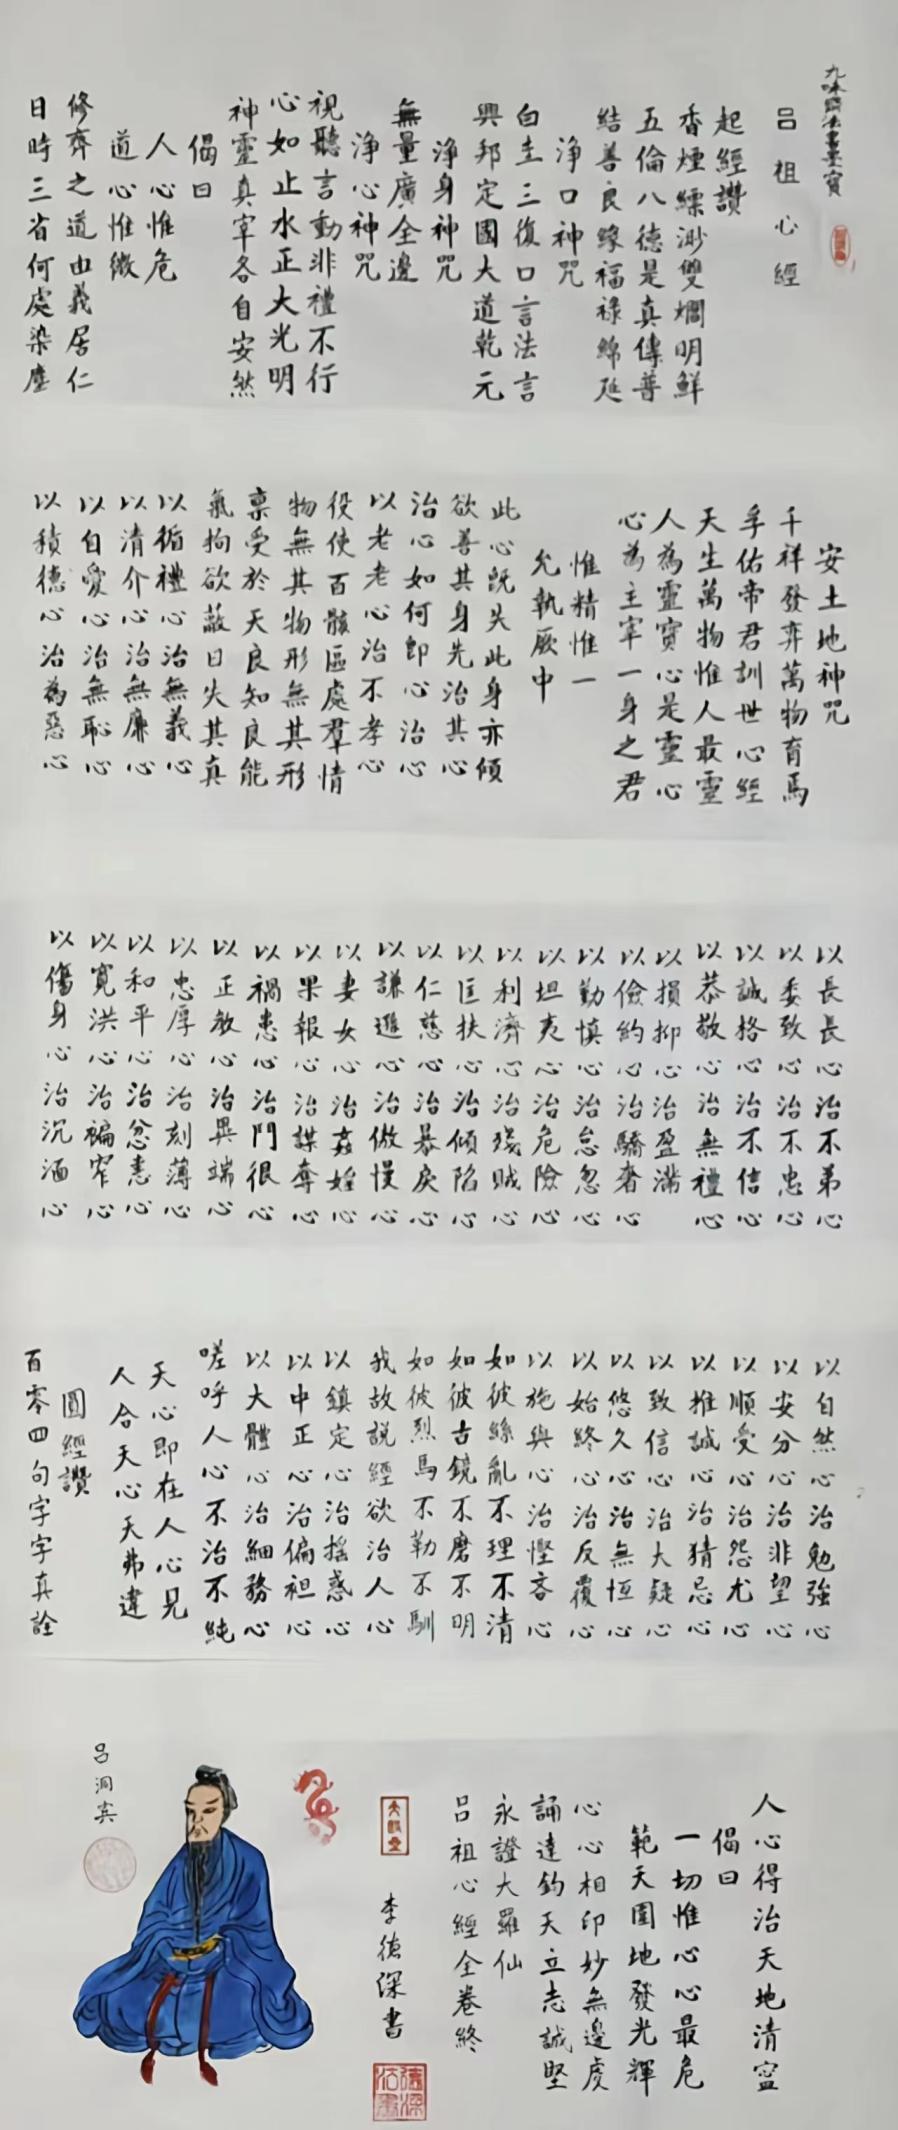 九味齋法書墨寶
呂祖心經
起經讚
香煙縹渺雙燭明鮮
五倫八德是真傳普
結善良緣福祿綿延
淨口神咒
白圭三復口言法言
興邦定國大道乾元
淨身神咒
無量廣全邊
淨心神咒
視聽言動非禮不行
心如止水正大光明
神靈真宰各自安然
偈曰
人心惟危
道心惟微
修齊之道由義居仁
日時三省何處染塵
安土地神咒
千祥發弈萬物育焉
孚佑帝君訓世心經
天生萬物惟人最靈
人為靈寶心是靈心
心為主宰一身之君
惟精惟一
允執厥中
此心既失此身亦傾
欲善其身先治其心
治心如何即心治心
以老老心治不孝心
役使百骸區處羣情
物無其物形無其形
稟受於天良知良能
氣拘欲蔽日失其真
以循禮心治無義心
以清介心治無廉心
以自愛心治無恥心
以積德心治為惡心
以長長心治不弟心
以委致心治不忠心
以誠格心治不信心
以恭敬心治無禮心
以損抑心治盈滿
以儉約心治驕奢心
以勤慎心治怠忽心
以坦夷心治危險心
以利濟心治殘賊心
以匡扶心治傾陷心
以仁慈心治暴戾心
以謙遜心治傲慢心
以妻女心治姦婬心
以果報心治謀奪心
以禍患心治鬥很心
以正教心治異端心
以忠厚心治刻薄心
以和平心治忿恚心
以寬洪心治褊窄心
以傷身心治沉湎心
以自然心治勉強心
以安分心治非望心
以順受心治怨尤心
以推誠心治猜忌心
以致信心治大疑心
以悠久心治無恆心
以始終心治反覆心
以施與心治慳吝心
如彼絲亂不理不清
如彼古鏡不磨不明
如彼烈馬不勒不馴
我故說經欲治人心
以鎮定心治搖惑心
以中正心治偏袒心
以大體心治細務心
嗟呼人心不治不純
天心即在人心見
人合天心天弗違
圓經讚
百零四句字字真詮
人心得治天地清寍
偈曰
一切惟心心最危
範天圍地發光輝
心心相印妙無邊虔
誦達鈞天立志誠堅
永證大羅仙
呂祖心經全卷終
李德深書
呂洞宾